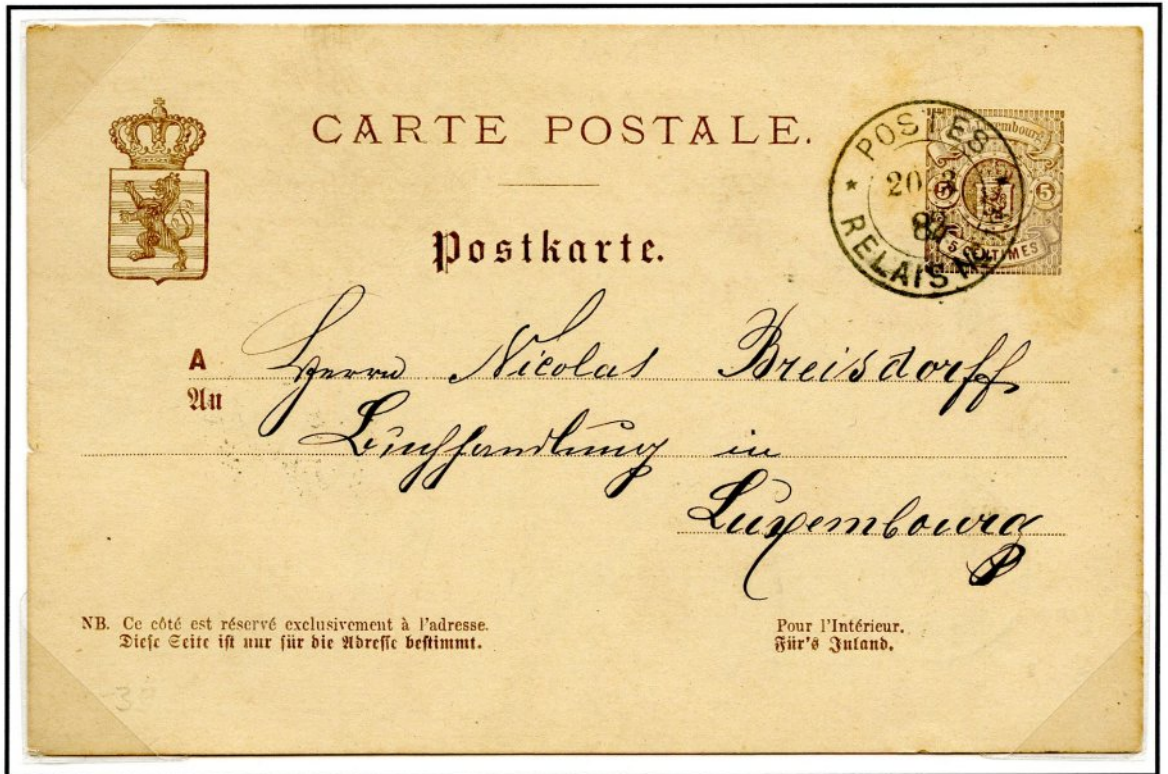 CARTE POSTALE.
Postkarte.
POSTES
20 3
82
RELAIS No
Luxembourg
5 5
5 CENTIMES
A Herrn Nicolas Breisdorff
An
Buchhandlung in
Luxembourg
NB. Ce côté est réservé exclusivement à l'adresse.
Diese Seite ist nur für die Adresse bestimmt.
Pour l'Intérieur.
Für's Inland.